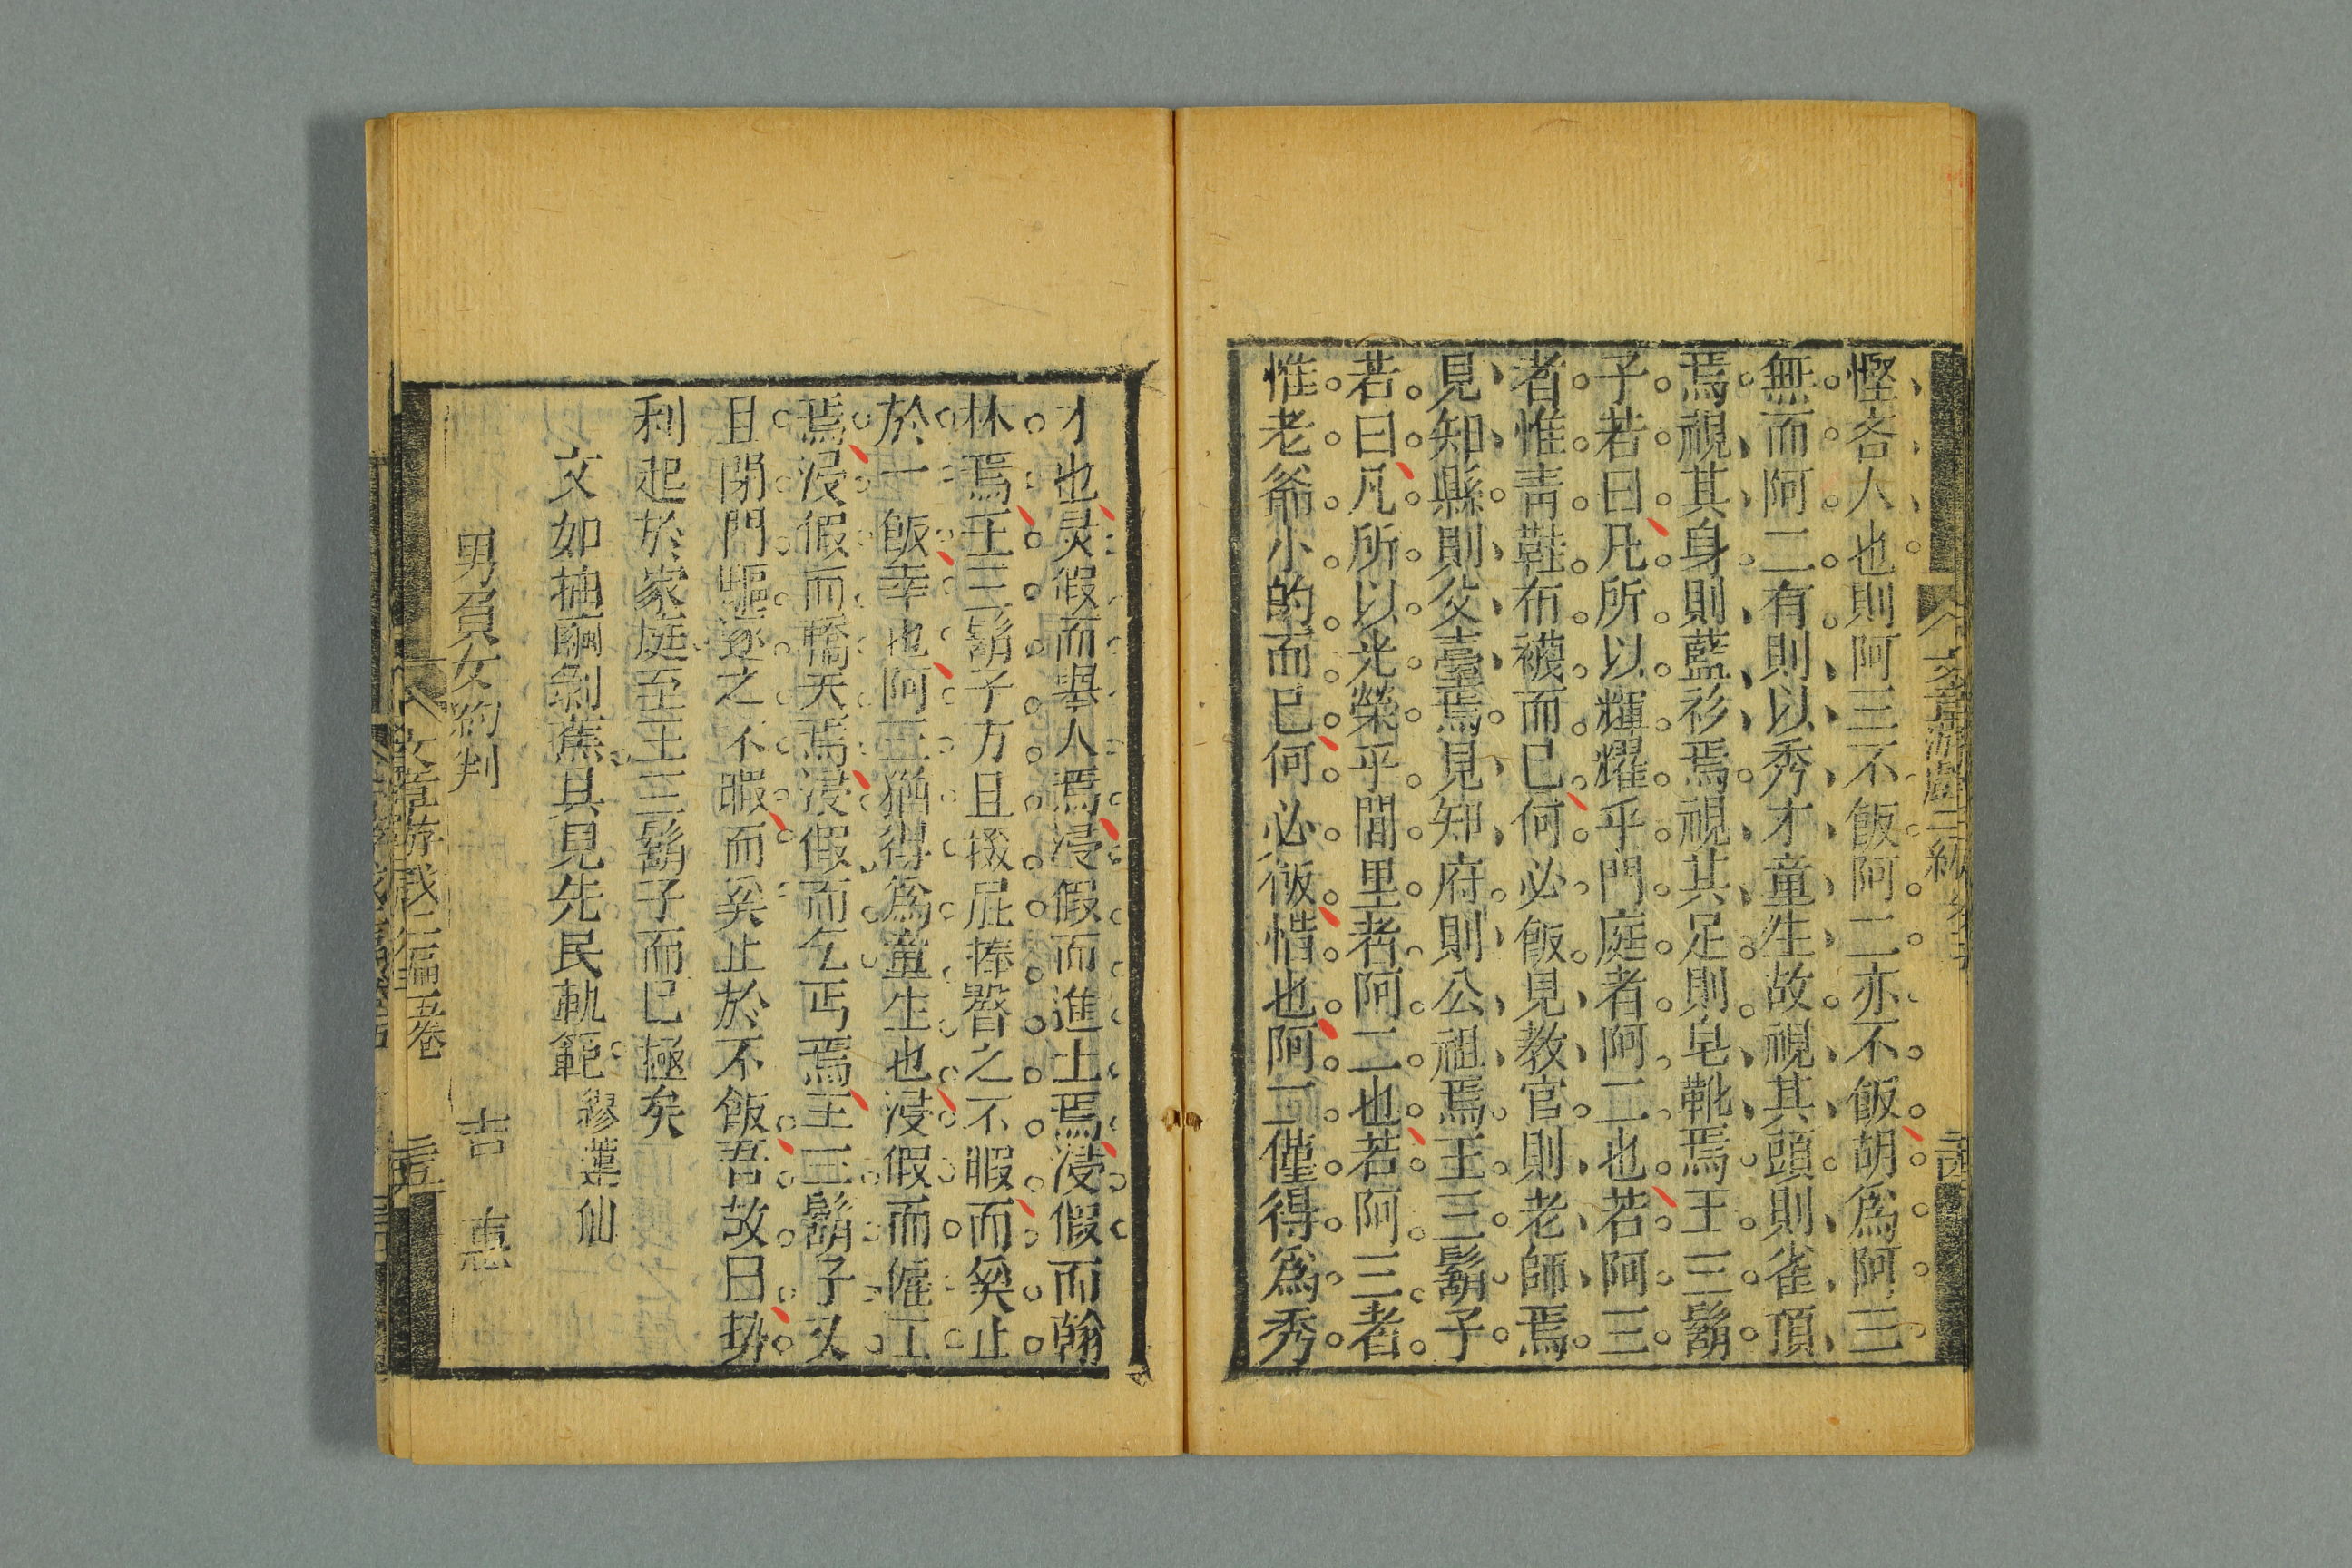 慳吝人也則阿三不飯阿二亦不飯胡爲阿三
無而阿二有則以秀才童生故視其頭則雀頂
焉視其身則藍衫焉視其足則皂靴焉王三鬍
子若曰凡所以輝耀乎門庭者阿二也若阿三
者惟青鞋布襪而已何必飯見教官則老師焉
見知縣則父臺焉見知府則公祖焉王三鬍子
若曰凡所以光榮乎閭里者阿二也若阿三者
惟老爺小的而已何必飯惜也阿二僅得爲秀
才也浸假而舉人焉浸假而進士焉浸假而翰
林焉王三鬍子方且掇屁捧臀之不暇而奚止
於一飯幸也阿三猶得爲童生也浸假而傭工
焉浸假而轎夫焉浸假而乞丐焉王三鬍子又
且閉門驅逐之不暇而奚止於不飯吾故曰勢
利起於家庭至王三鬍子而已極矣
文如抽繭剝蕉具見先民軌範 繆蓮仙
男負女約判 吉惠
文章游戲二編 卷五